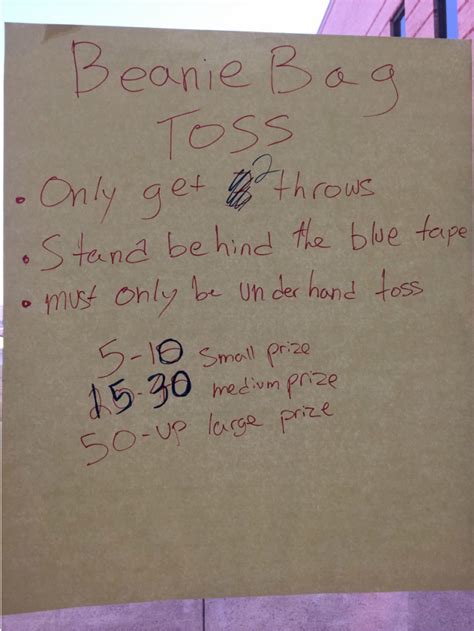 Beanie Bag
TOSS
• Only get 2 throws
• Stand behind the blue tape
• must only be underhand toss
5-10 small prize
15-30 medium prize
50-up large prize